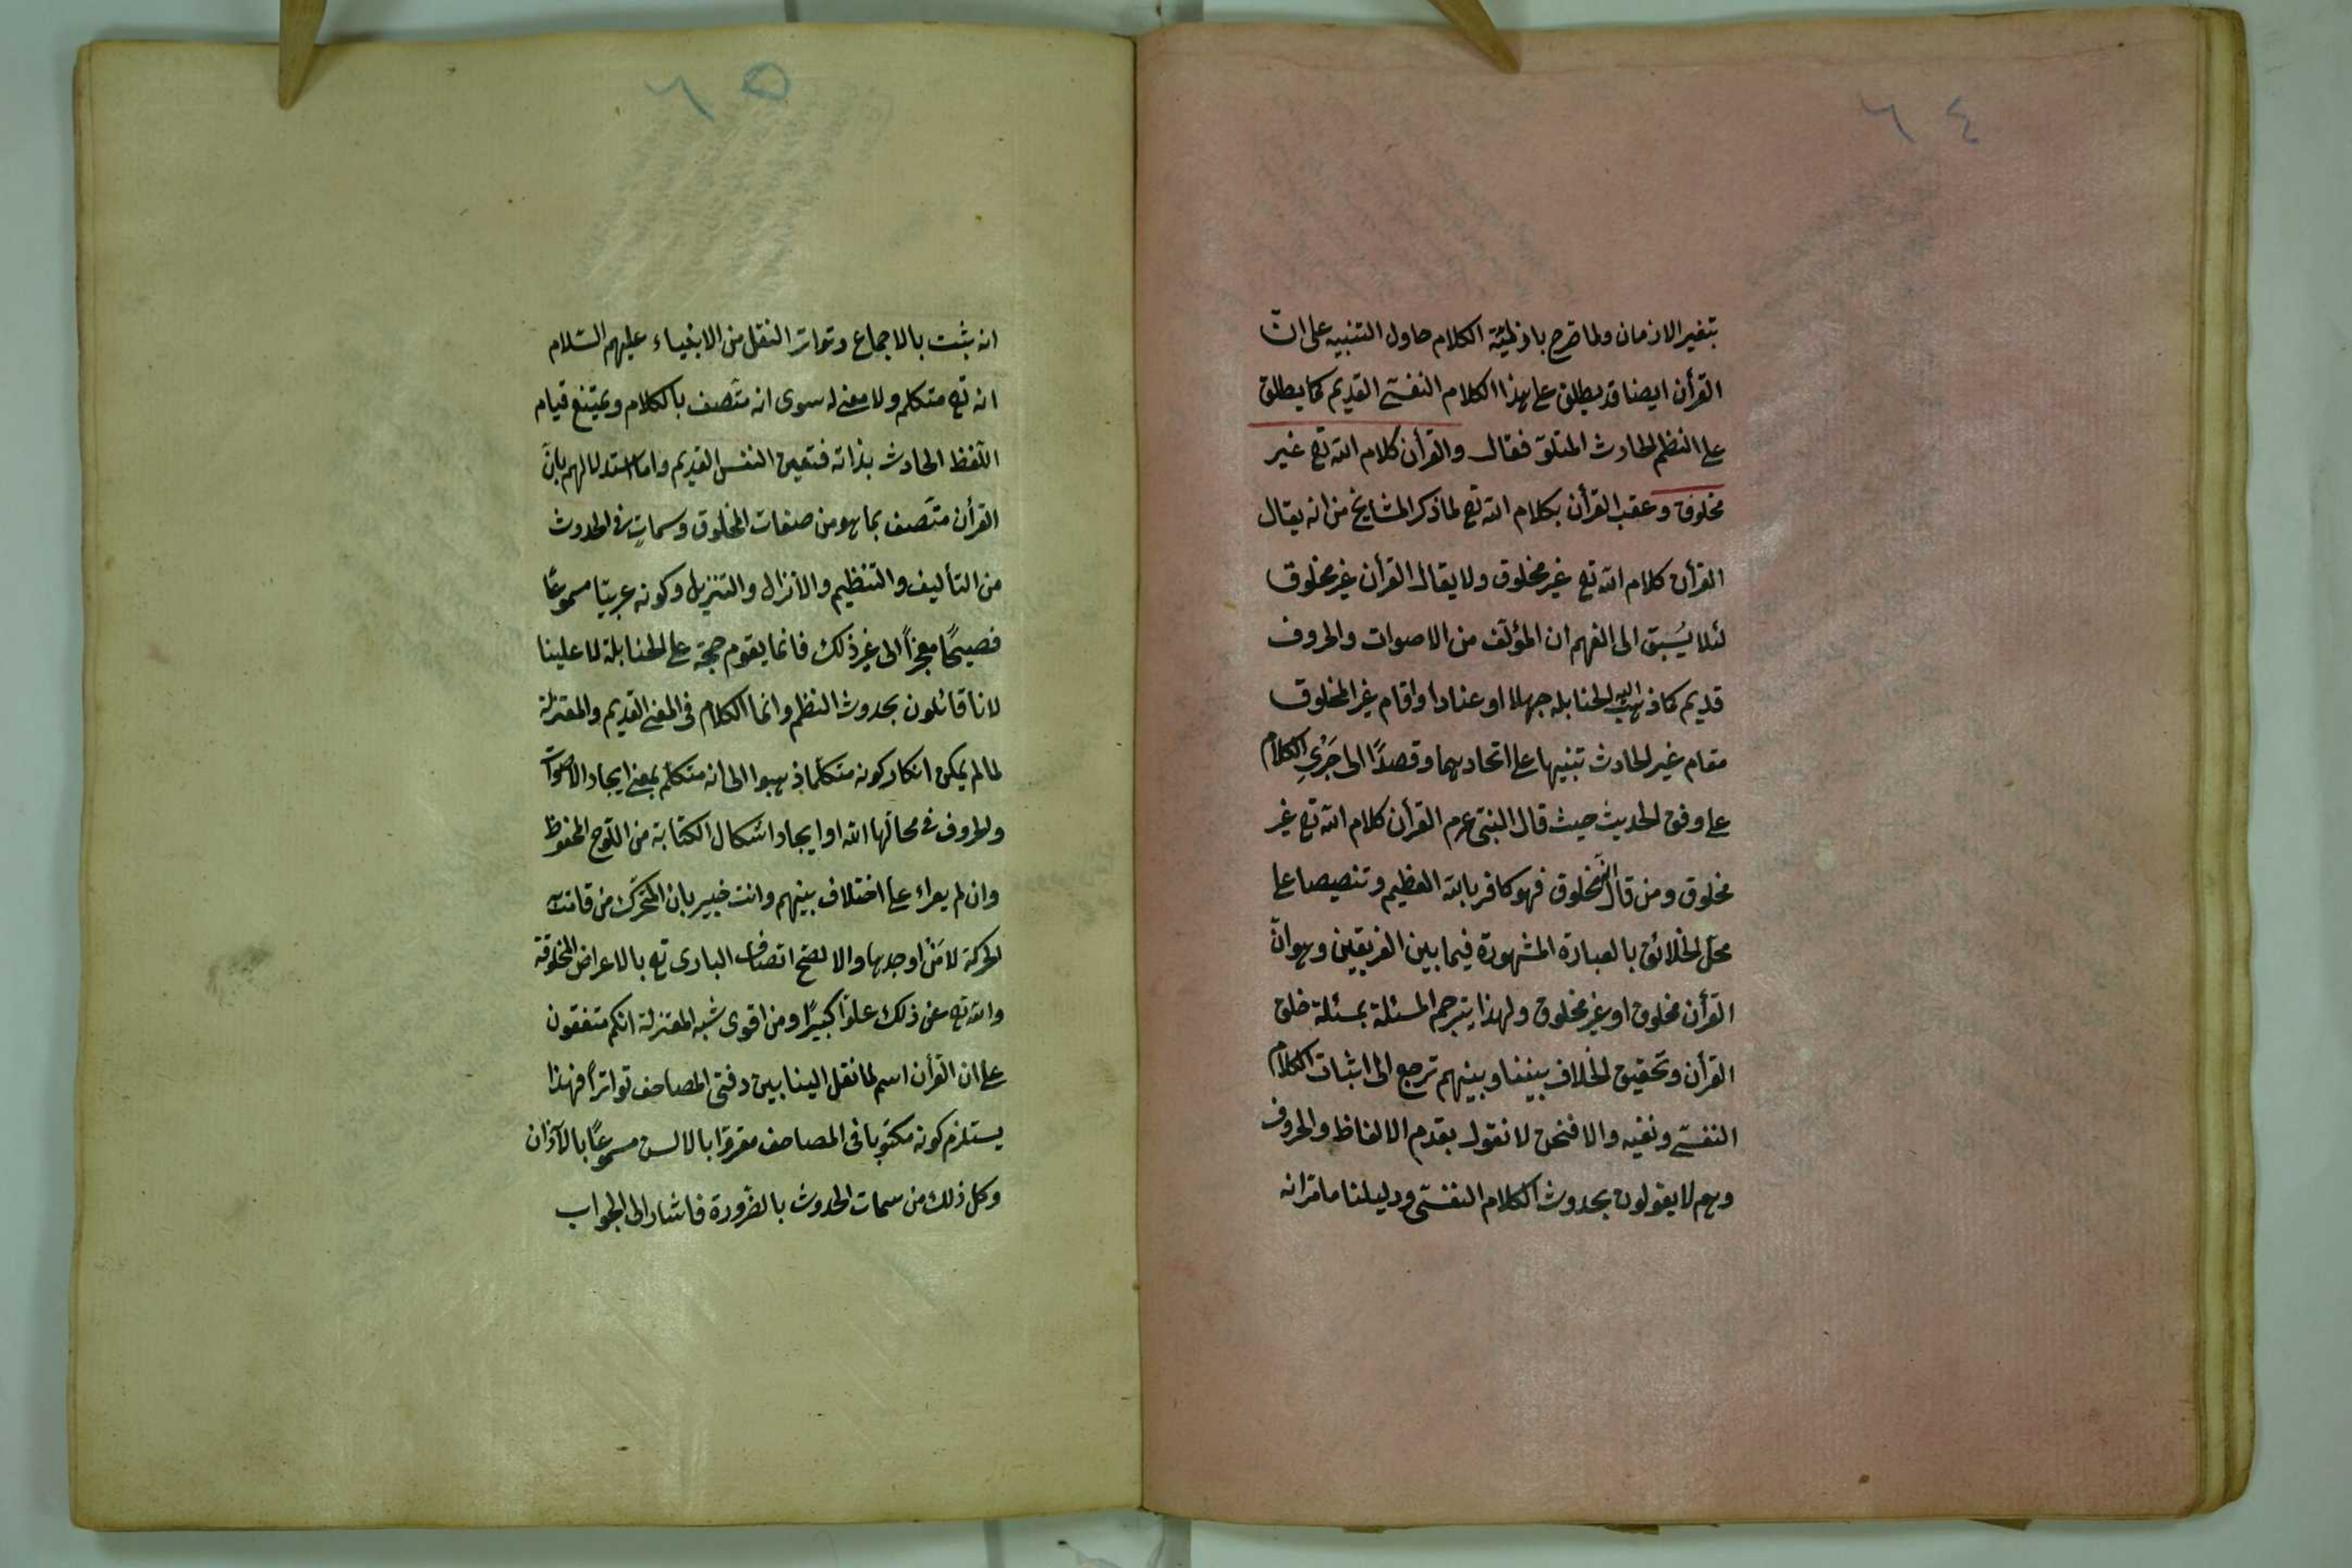 ٦٤
بتغير الازمان ولما صرح بازلية الكلام حاول التنبيه على انّ
القرأن ايضا قد يطلق على هذا الكلام النفسى القديم كما يطلق
على النظم الحادث المتلوّ فقال والقرأن كلام الله تع غير
مخلوق وعقب القرأن بكلام الله تع لما ذكر المشايخ من انه يقال
القرأن كلام الله تع غير مخلوق ولا يقال القرأن غير مخلوق
لئلا يُسبق الى الفهم ان المؤلّف من الاصوات والحروف
قديم كما ذهب اليه الحنابله جهلا او عنادا واقام غير المخلوق
مقام غير الحادث تنبيها على اتحادهما وقصدًا الى جَرْيِ الكلام
على وفق الحديث حيث قال النبىّ عرم القرأن كلام الله تع غير
مخلوق ومن قال انّه مخلوق فهو كافر بالله العظيم وتنصيصا على
محلّ الخلائق بالعبارة المشهورة فيما بين الفريقين وهو انّ
القرأن مخلوق او غير مخلوق ولهذا يترجم المسئلة بمسئلة خلق
القرأن وتحقيق الخلاف بيننا وبينهم ترجع الى اثبات الكلام
النفسىّ ونفيه والا فنحن لا نقول بقدم الالفاظ والحروف
وهم لا يقولون بحدوث الكلام النفسىّ ودليلنا ما مرّ انه
٦٥
انه ثبت بالاجماع وتواتر النقل من الانبياء عليهم السّلام
انه تع متكلم ولا معنى له سوى انه متّصف بالكلام ويمتنع قيام
اللّفظ الحادث بذاته فتعين النفسى القديم واما استدلالهم بانّ
القرأن متّصف بما هو من صفات المخلوق وسماتٍ فى الحدوث
من التأليف والتنظيم والانزال والتنزيل وكونه عربيّا مسموعًا
فصيحًا معجزاً الى غير ذلك فانما يقوم حجّة على الحنابلة لا علينا
لانا قائلون بحدوث النظم وانما الكلام فى المعنى القديم والمعتزلة
لما لم يمكن انكار كونه متكلّما ذهبوا الى انه متكلّم بمعنى ايجاد الاصوات
والحروف فى محالّها الله او ايجاد اشكال الكتابة من اللّوح المحفوظ
وان لم يعراء على اختلاف بينهم وانت خبير بان المتحرّك من قامت
الحركة لا مَنْ اوجدها والا لصحّ اتصاف البارى تع بالاعراض المخلوقة
والله تع عن ذلك علوّا كبيرًا ومن اقوى شبه المعتزلة انكم متفقون
على ان القرأن اسم لما نقل الينا بين دفتى المصاحف تواتراً فهذا
يستلزم كونه مكتوبا فى المصاحف مقروّا بالالسن مسموعًا بالآذان
وكل ذلك من سمات الحدوث بالضّرورة فاشار الى الجواب